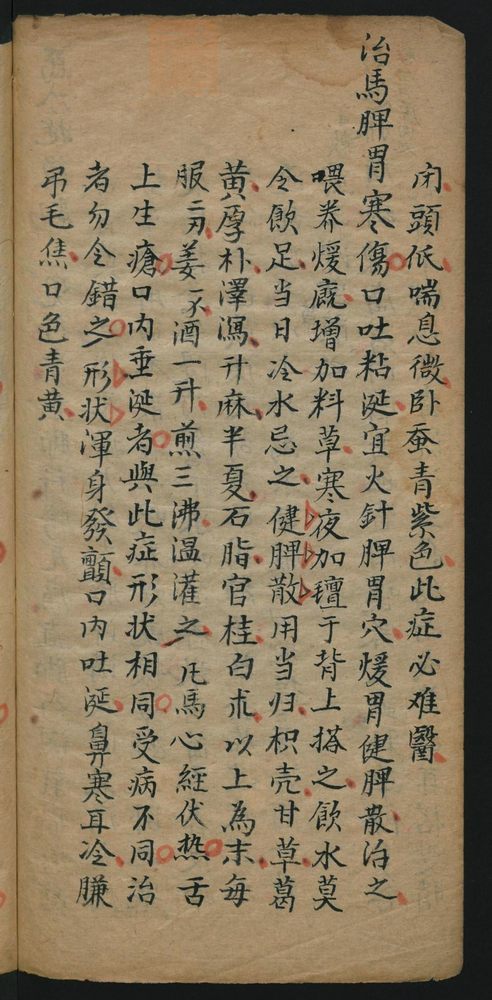 闭頭低喘息微卧蚕青紫色此症必难醫
治馬脾胃寒傷口吐粘涎宜火針脾胃穴煖胃健脾散治之
喂养煖廐增加料草寒夜加氊于背上搭之飲水莫
令飲足当日冷水忌之健脾散用当归枳壳甘草葛
黄厚朴澤瀉升麻半夏石脂官桂白朮以上為末每
服二刃姜一分酒一升煎三沸温灌之凡馬心經伏热舌
上生瘡口内垂涎者與此症形状相同受病不同治
者勿令錯之形状渾身發顫口内吐涎鼻寒耳冷膁
吊毛焦口色青黄